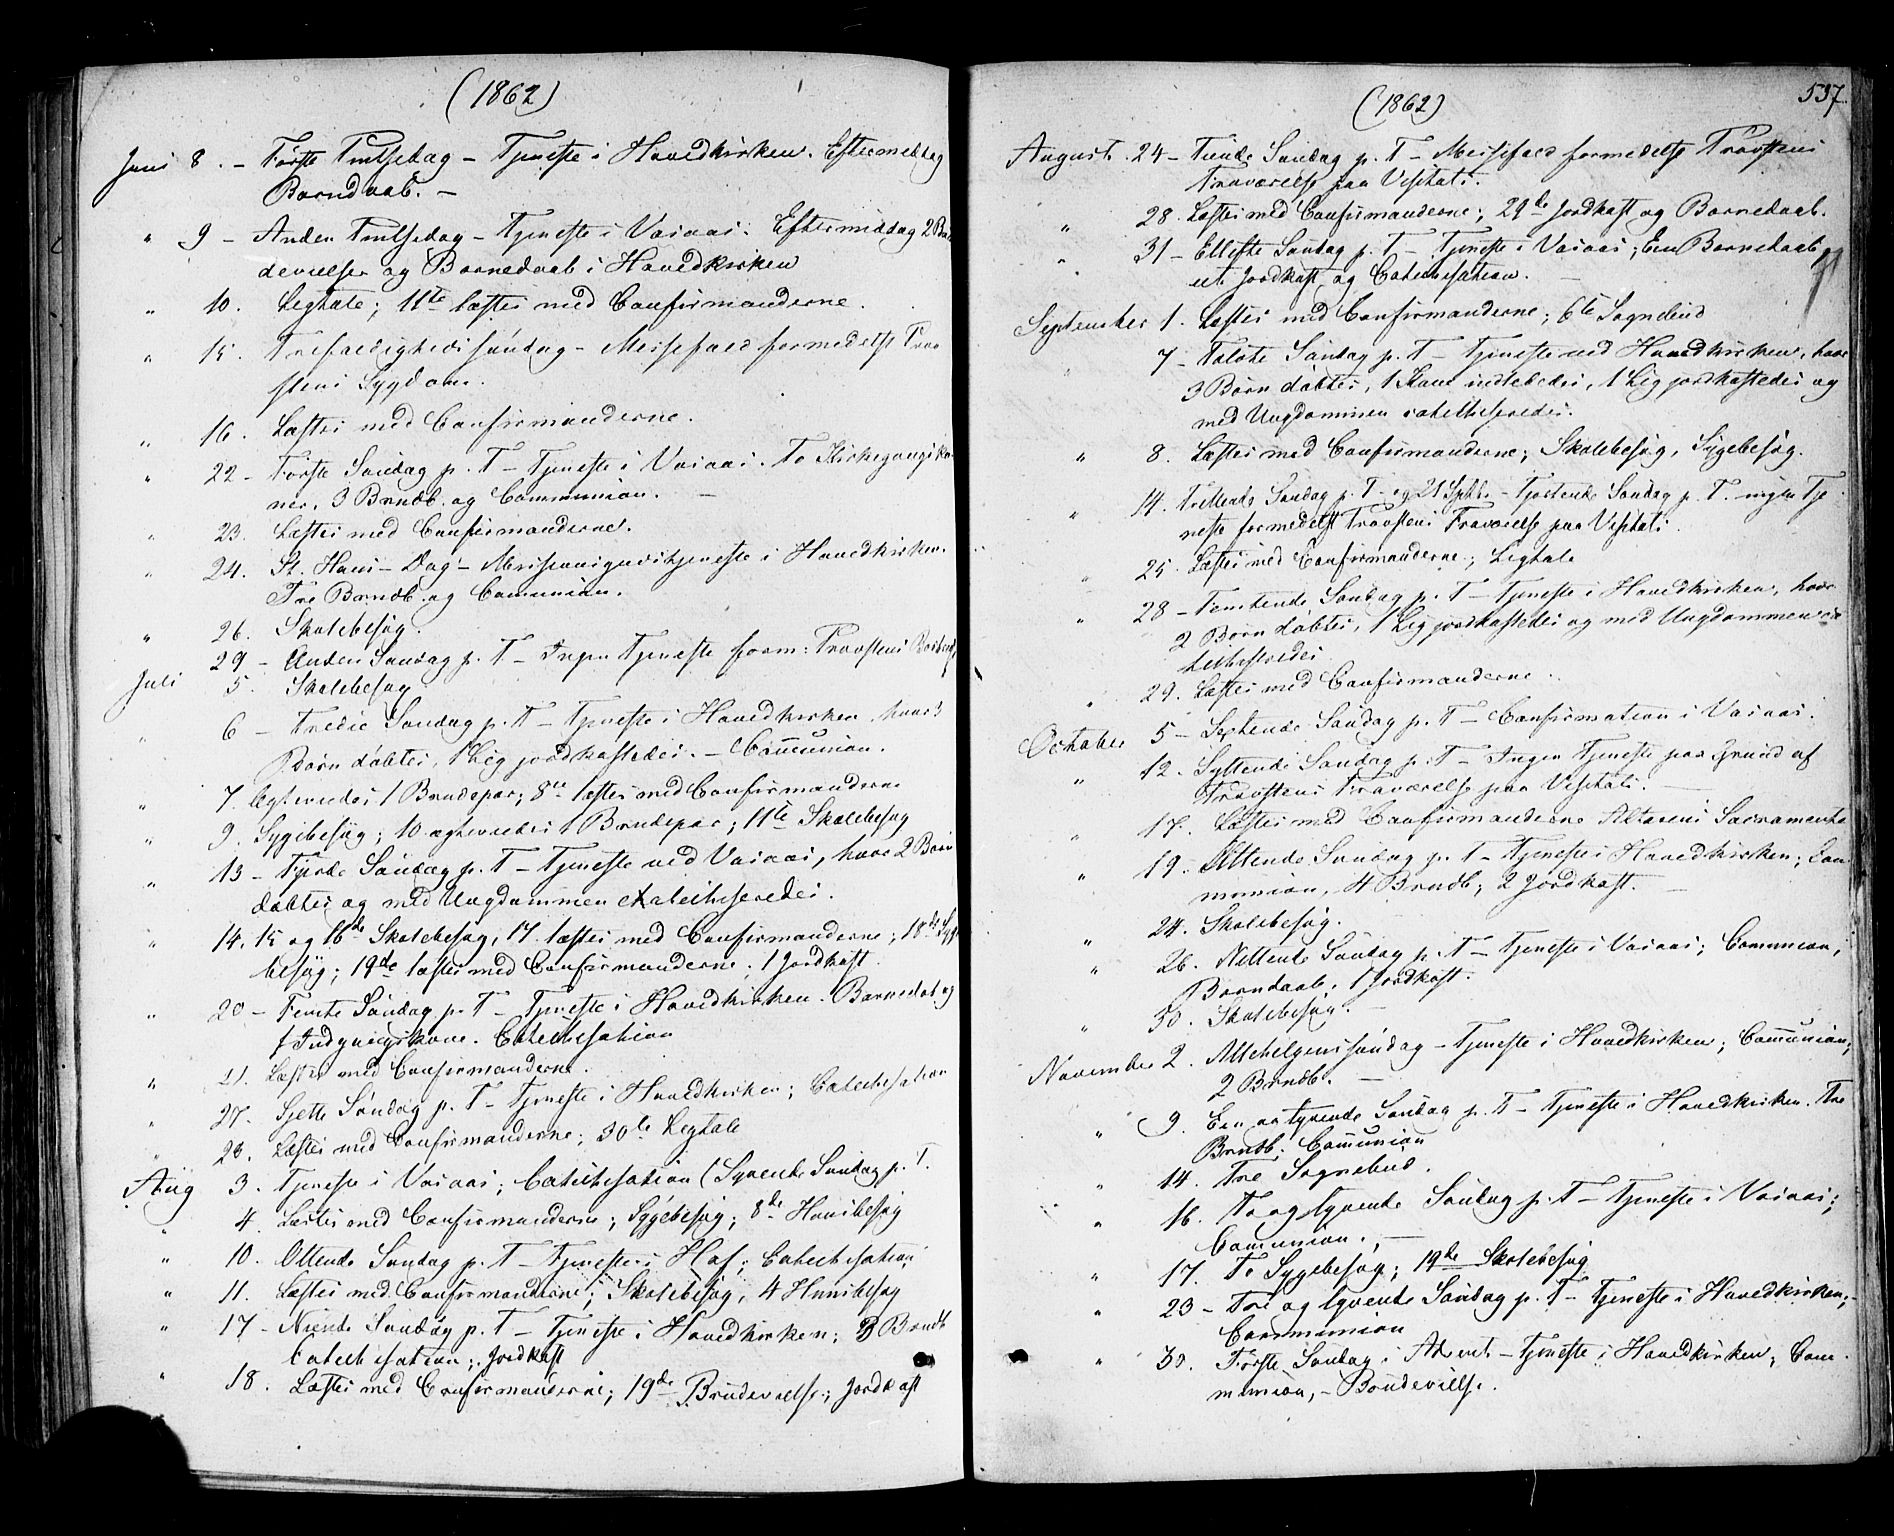 (1862)
Juni 8. – Første Pintsedag – Tjeneste i Hovedkirken. Eftermiddag
Barndaab. –
" 9 – Anden Pintsedag – Tjeneste i Vasaas. Eftermiddag 2 Bru
devielser og Barnedaab i Hovedkirken
" 10. Ligtale; 11te læstes med Confirmanderne.
" 15. Trefoldighedssøndag – Messefald formedelst Prov
stens Sygdom.
" 16. Læstes med Confirmanderne.
" 22 – Første Søndag p. T – Tjeneste i Vasaas. To Kirkegangsko
ner, 3 Brndb. og Communion. –
" 23. Læstes med Confirmanderne.
" 24. St. Hans-Dag – Missionsgudstjeneste i Hovedkirken.
Tre Brndb. og Comunion.
" 26. Skolebesøg.
29 – Anden Søndag p. T – Ingen Tjeneste form: Provstens
Juli 5. Skolebesøg
" 6 – Tredie Søndag p. T – Tjeneste i Hovedkirken, hvor 3
Børn døbtes, 1 Lig jordkastedes. – Communion.
" 7. Egteviedes 1 Brudepar; 8de læstes med Confirmanderne
" 9. Sygebesøg; 10 egteviedes 1 Brudepar; 11te Skolebesøg
" 13 – Fjerde Søndag p. T – Tjeneste ved Vasaas, hvor 2 Børn
døbtes og med Ungdommen catechiseredes.
" 14, 15 og 16de Skolebesøg, 17. læstes med Confirmanderne; 18de Syge
besøg; 19de læstes med Confirmanderne; 1 Jordkast.
" 20 – Femte Søndag p. T – Tjeneste i Hovedkirken. Barnedab og
1 Indgangskone. Catechisation
" 21. Læstes med Confirmanderne.
" 27. Sjette Søndag p. T – Tjeneste i Hovedkirken; Catechisation
" 28. Læstes med Confirmanderne; 30te Ligtale
Aug 3. Tjeneste i Vasaas; Catechisation (Syvende Søndag p. T.
" 4. Læstes med Confirmanderne; Sygebesøg; 8de Husbesøg
" 10. Ottende Søndag p. T – Tjeneste i Hof; Catechisation
" 11. Læstes med Confirmanderne; Skolebesøg, 4 Husbesøg
" 17 – Niende Søndag p. T – Tjeneste i Hovedkirken; 3 Brndb
Catechisation; Jordkast
" 18. Læstes med Confirmanderne; 19de Brudevielse; Jordkast
(1862)
537.
August. 24 – Tiende Søndag p. T – Messefald formedelst Provstens
Fraværelse paa Visitats.
" 28. Læstes med Confirmanderne; 29de Jordkast og Barnedaab.
" 31 – Ellefte Søndag p. T – Tjeneste i Vasaas; En Barnedaab,
et Jordkast, og Catechisation. –
September 1. Læstes med Confirmanderne; 6te Sognebud
" 7 – Tolvte Søndag p. T – Tjeneste ved Hovedkirken, hvor
3 Børn døbtes, 1 Kone indlededes, 1 Lig jordkastedes og
med Ungdommen catechiseredes.
" 8. Læstes med Confirmanderne; Skolebesøg, Sygebesøg.
" 14. Trettende Søndag p. T – og 21 Septbr – Fjortende Søndag p. T. ingen Tje
neste formedelst Provstens Fraværelse paa Visitats.
" 25. Læstes med Confirmanderne; Ligtale
" 28 – Femtende Søndag p. T – Tjeneste i Hovedkirken, hvor
2 Børn døbtes, 1 Lig jordkastedes og med Ungdommen ca
techiseredes
" 29. Læstes med Confirmanderne.
October 5 – Sextende Søndag p. T – Confirmation i Vasaas.
" 12. Syttende Søndag p. T – Ingen Tjeneste paa Grund af
Provstens Fraværelse paa Visitats. –
" 17. Læstes med Confirmanderne Altarens Sacramente
" 19. Attende Søndag p. T – Tjeneste i Hovedkirken; Com
munion, 4 Brndb; 2 Jordkast. –
" 24. Skolebesøg.
" 26. Nittende Søndag p. T – Tjeneste i Vasaas; Comunion;
Barndaab; 1 Jordkast.
" 30. Skolebesøg. –
November 2. Allehelgenssøndag – Tjeneste i Hovedkirken; Communion;
2 Brndb. –
" 9. En og tyvende Søndag p. T – Tjeneste i Hovedkirken. Tre
Brndb; Communion
" 14. Tre Sognebud.
" 16. To og tyvende Søndag p. T – Tjeneste i Vasaas;
Comunion. –
" 17. To Sygebesøg; 19de Skolebesøg
" 23 – Tre og tyvende Søndag p. T – Tjeneste i Hovedkirken;
Communion
" 30. Første Søndag i Advent – Tjeneste i Hovedkirken; Com
munion, – Brudevielse.